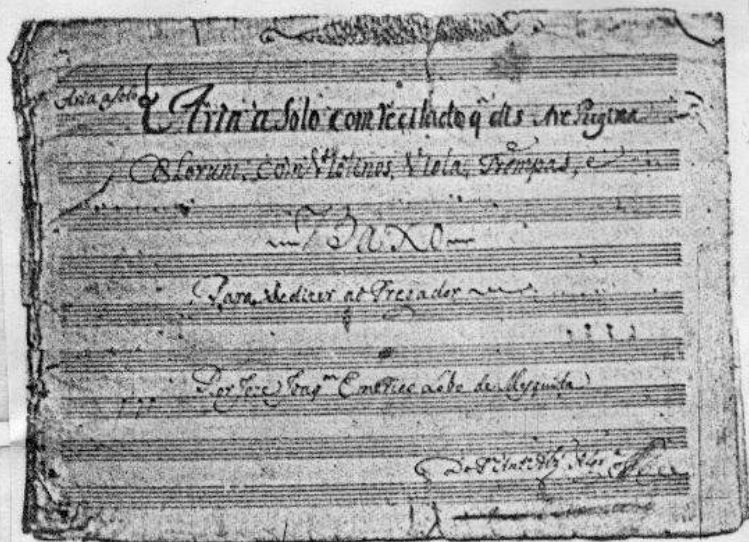 Aria a solo
Aria a Solo com recitado q̃ dis Ave Regina
Cælorum. com Violinos, Viola, Trompas, e
Baxo
Para Pregador
Por Joze Joaq.m Emerico Lobo de Mesquita